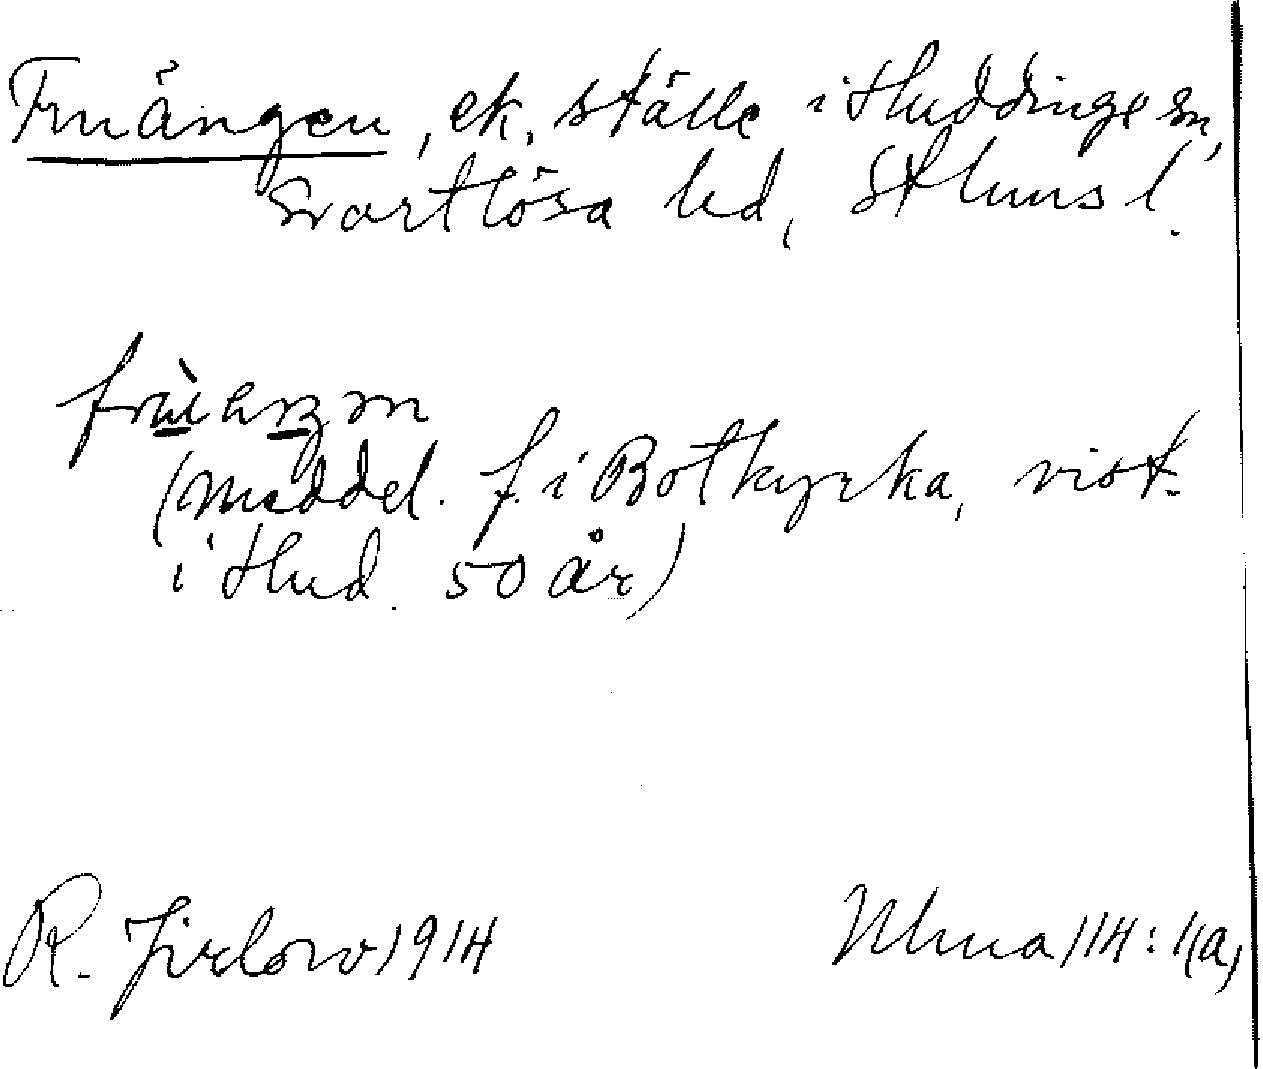 Fruängen, ek. ställe i Huddinge sn,
Svartlösa hd, Sthlms l.
(meddel. f. i Botkyrka, vist.
i Hud. 50 år)
R. Jirlow 1914